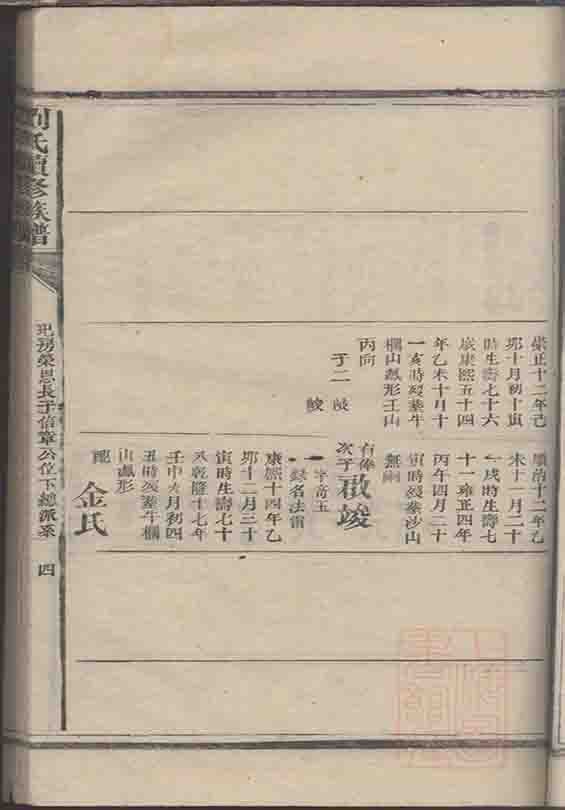 劉氏續修族譜
房榮恩長子信章公位下總派系
四
崇正十二年己
卯十月初十寅
時生壽七十六
歲康熙五十四
年乙未十月十
一亥時歿葬牛
欄山鳳形壬山
丙向
子二
峻
順治十二年乙
未十一月二十
一戌時生壽七
十一雍正四年
丙午四月二十
寅時歿葬沙山
無嗣
有俸次子啟竣
字高玉
一錄名法雷
康熙十四年乙
卯十二月三十
寅時生壽七十
八乾隆十七年
壬申六月初四
丑時歿葬牛欄
山鳳形
配金氏